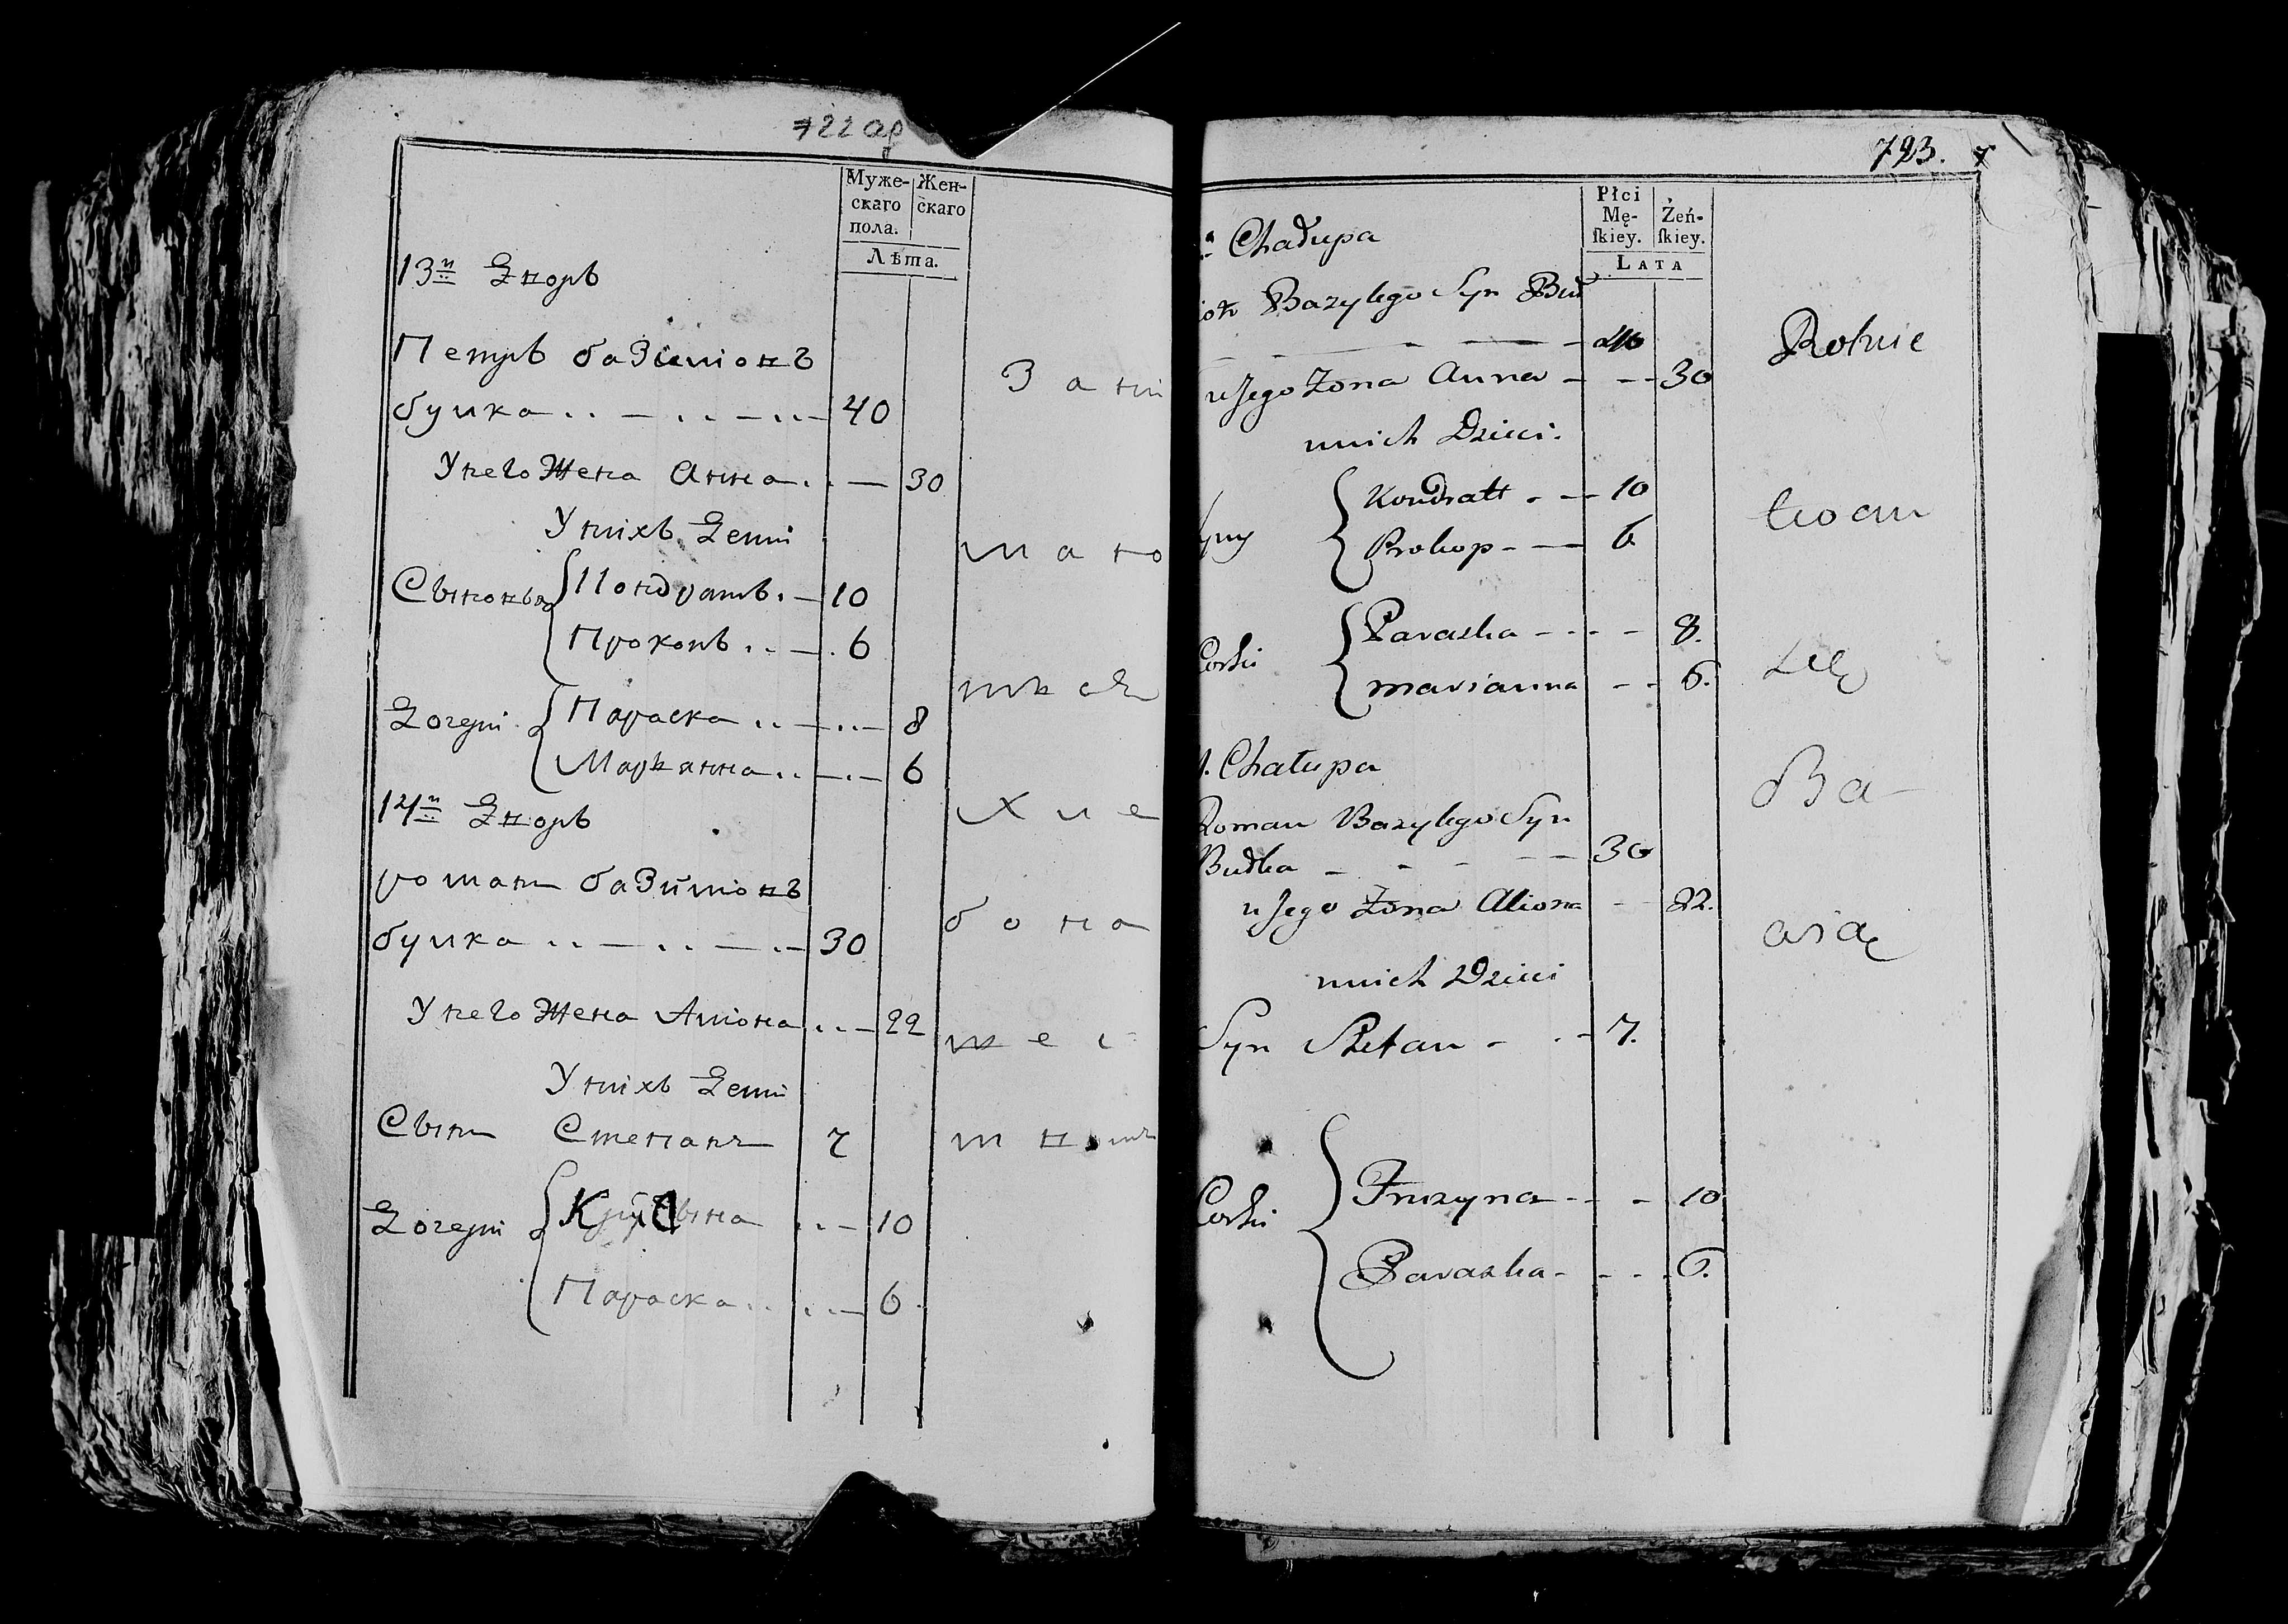 722 об
Муже-
скаго
пола.
Жен-
скаго
Лѣта.
13й Дворъ
Петръ базилiовъ
будка 40
У него Жена Анна 30
У нихъ Дети
Сыновья Кондратъ 10
Прокопъ 6
Дочери Параска 8
Маріянна 6
14й Дворъ
роман базилiовъ
будка 30
У него Жена Алiона 22
У нихъ Дети
Сынъ Степанъ 7
Дочери 10
Параска 6
Зани
маю
тся
хле
бопа
шес
тв
723.
Płci
Mę-
ſkiey.
Żeń-
ſkiey.
LATA
Chałupa
Bazylego Syn Bud
40
u Jego Zona Anna 30
u nich Dzieci.
Kondratt 10
yny
Prokop 6
Corki Paraska 8.
marianna 6.
Chałupa
Roman Bazylego Syn
Budka 30
u Jego Zona Aliona 22.
u nich Dzieci
Syn Stefan 7.
Corki Fruzyna 10
Paraska 6.
Rolnic
twem
się
Ba-
wią